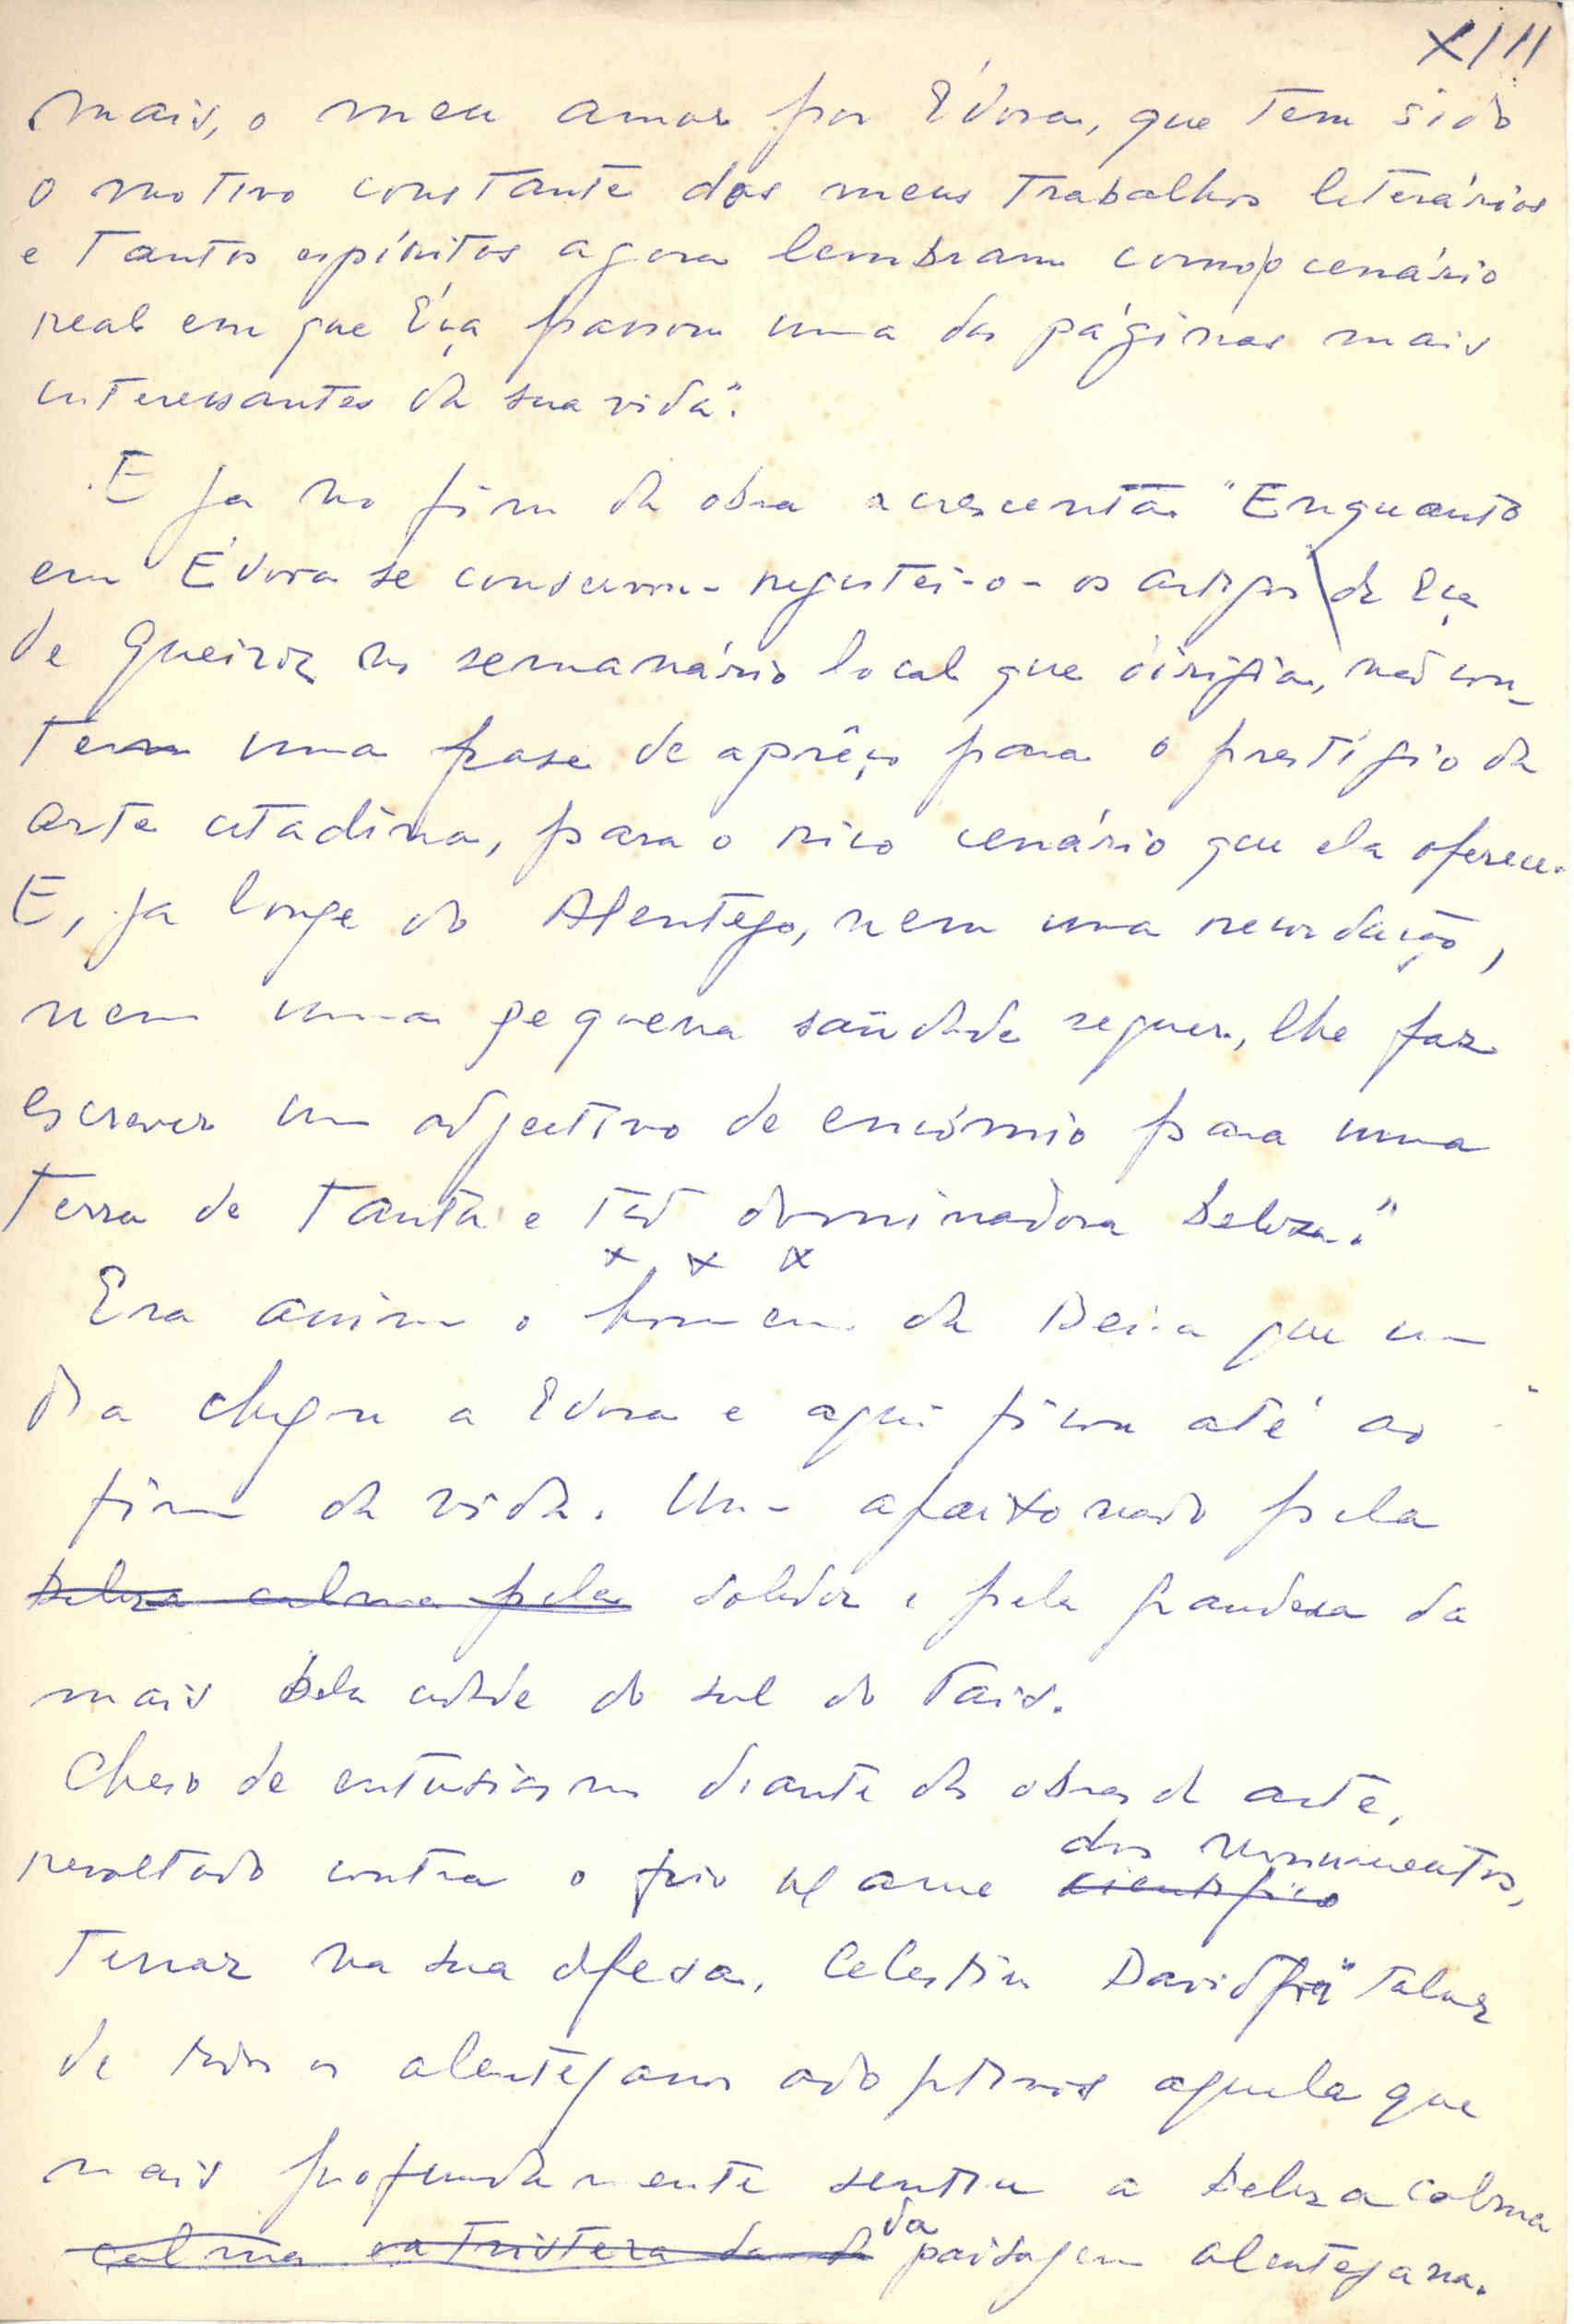 XIII
mais, o meu amor por Évora, que tem sido
o motivo constante dos meus trabalhos literários
e tantos espíritos agora lembram como o cenário
real em que Eça passou uma das páginas mais
interessantes da sua vida".
E já no fim da obra acrescenta "Enquanto
em Évora se conservou - registei-o - os artigos de Eça
de Queiroz no semanário local que dirigia, não con-
tem uma frase de aprêço para o prestígio da
arte citadina, para o rico cenário que ela oferece.
E, já longe do Alentejo, nem uma recordação,
nem uma pequena saüdade sequer, lhe faz
escrever um adjectivo de encómio para uma
terra de tanta e tão dominadora beleza."
x x x
Era assim o homem da Beira que um
dia chegou a Évora e aqui ficou até ao
fim da vida. Um apaixonado pela
beleza calma pela solidez e pela grandeza da
mais bela cidade do sul do País.
Cheio de entusiasmo diante das obras de arte,
dos monumentos,
revoltado contra o frio exame científico
tenaz na sua defesa, Celestino David foi "talvez
de todos os alentejanos adoptivos aquele que
mais profundamente sentiu a beleza calma
calma e a tristeza da da paisagem alentejana.